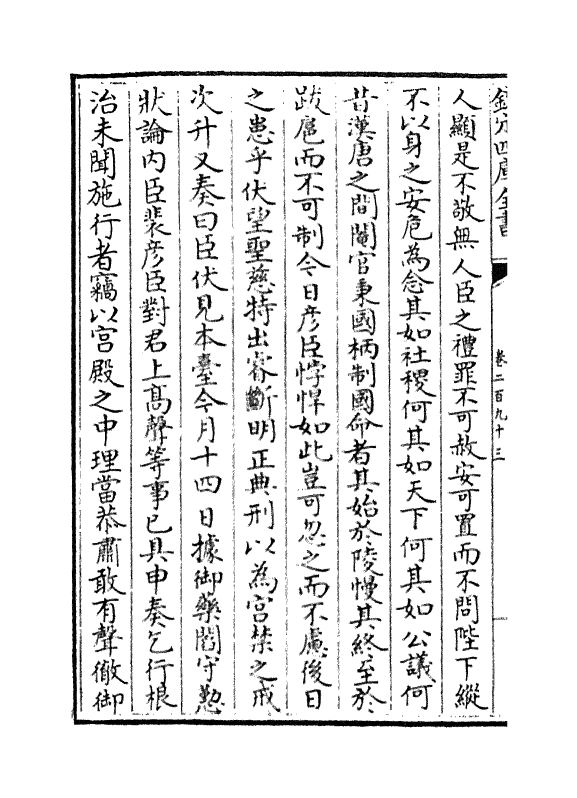 欽定四庫全書
卷二百九十三
人顯是不敬無人臣之禮罪不可赦安可置而不問陛下縱
不以身之安危為念其如社稷何其如天下何其如公議何
昔漢唐之間閹官秉國柄制國命者其始於陵慢其終至於
跋扈而不可制今日彦臣悖悍如此豈可忽之而不慮後日
之患乎伏望聖慈特出睿斷明正典刑以為宫禁之戒
次升又奏曰臣伏見本臺今月十四日據御藥閻守懃
狀論内臣裴彦臣對君上髙聲等事已具申奏乞行根
治未聞施行者竊以宫殿之中理當恭肅敢有聲徹御